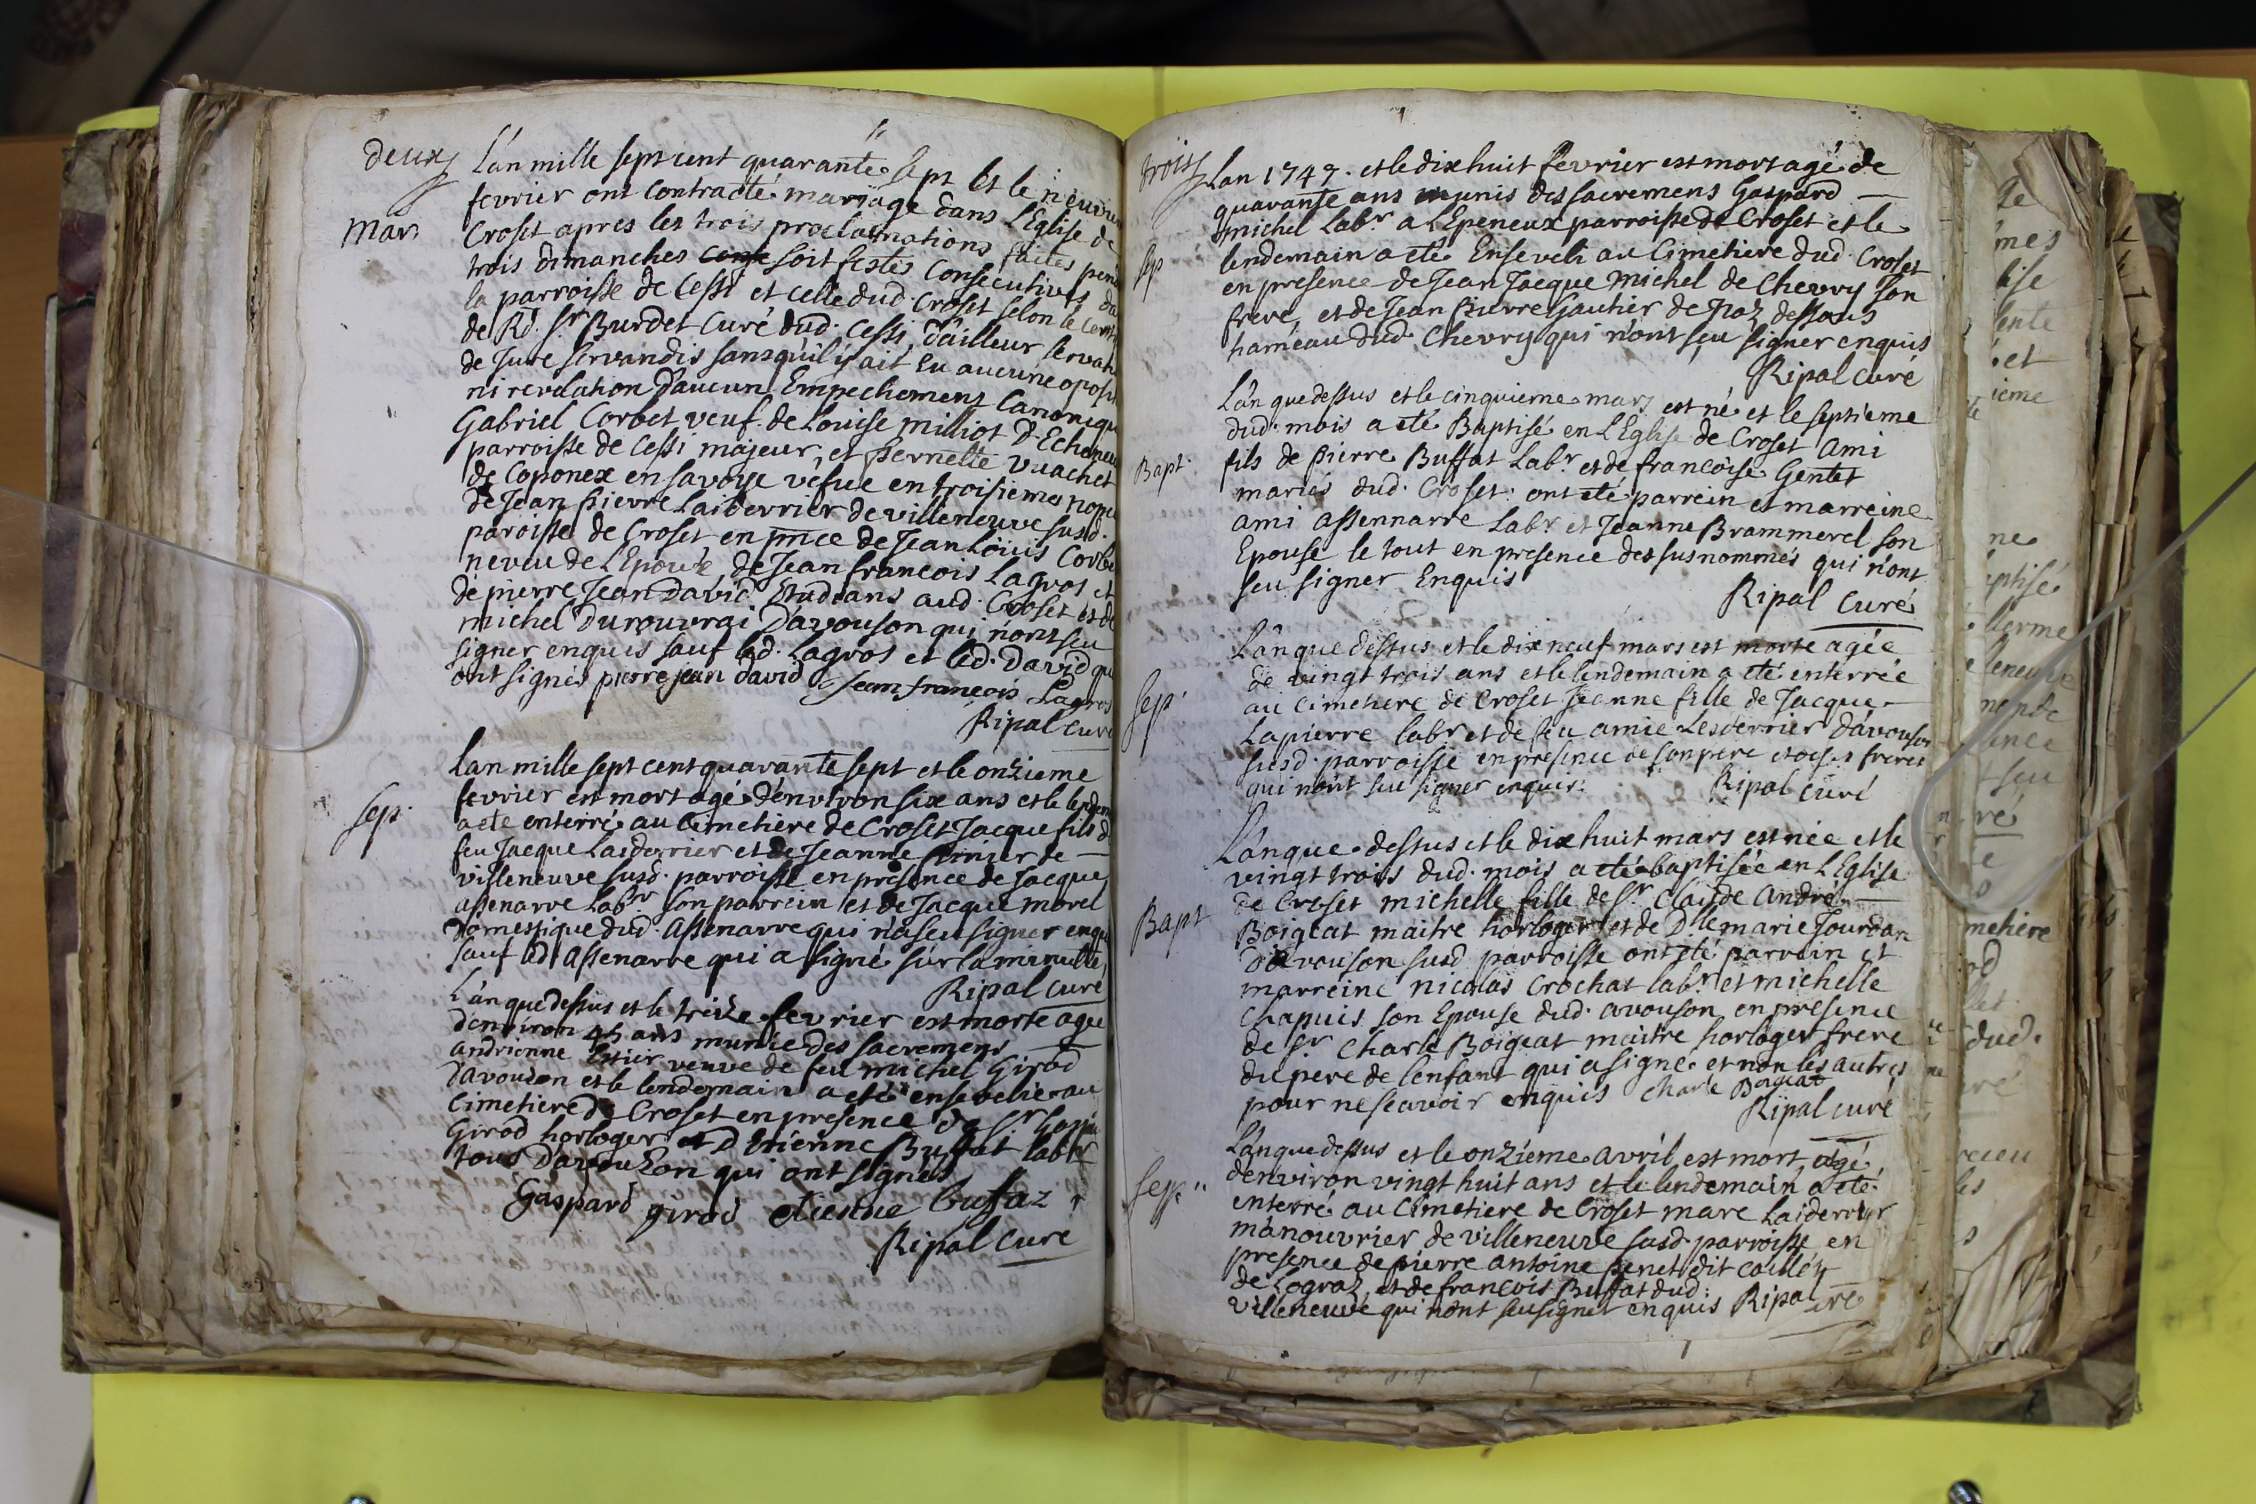 deux
L'an mille sept cent quarante sept et le neuvie
fevrier ont contracté mariage dans l'Eglise de
Mar.
Croset apres les trois proclamations faites pend
trois dimanches soit festes consecutives da
la parroisse de Cessi et celle dud. Croset selon le
de Rd. Sr Burdet Curé dud. Cessi, d'ailleur servatis
de jure servandis sans qu'il y ait Eu aucune oposi
ni revelation d'aucun Empechement Canonique
Gabriel Corbet veuf de Louise milliot D'Echeneve
parroisse de Cessi majeur, et pernette vuachet
de Coponex en savoye vefue en troisieme nopce
de Jean pierre Laiderrier de villeneuve susd.
paroisse de Croset en pnce de Jean Louis Corbe
neveu de l'Epoux de Jean francois Lagros et
de pierre Jean David Etudians aud. Croset et de
michel Durouvrai D'avouson qui n'ont seu
signer enquis sauf led. Lagros et led. David qui
ont signés pierre jean david
Jean francois Lagros
Ripal curé
Lan mille sept cent quarante sept et le onzieme
fevrier est mort agé denviron six ans et le lendem
sep.
a eté enterré au Cimetiere de Croset Jacque fils de
feu Jacque Laiderrier et de Jeanne de
villeneuve susd. parroisse en presence de Jacque
assenarre labr son parrein et de Jacque morel
domestique dud. Assenarre qui n'a seu signer enquis
sauf led Assenarre qui a signé sur la minutte,
Ripal curé
L'an que dessus et le treize fevrier est morte agee
d'environ 45 ans munie des sacremens
andrienne veuve de feu michel Girod
d'avouson et le lendemain a eté ensevelie au
Cimetiere de Croset en presence de Sr Gaspa
Girod horloger et D'Etienne Buffat labr
tous D'avouzon qui ont signés
Gaspard girod etienne buffaz
Ripal curé
trois
Lan 1747. et le dix huit fevrier est mort agé de
quarante ans munis des sacremens Gaspard
michel labr a l'Epeneux parroisse de Croset et le
sep
lendemain a eté Enseveli au Cimetiere dud. Croset
en presence de Jean Jacque michel de Chevry son
frere, et de Jean pierre Gautier de Naz dessous
hameau dud. Chevry qui n'ont seu signer enquis
Ripal curé
L'an que dessus et le cinquieme mars est né et le septieme
dud. mois a eté Baptisé en l'Eglise de Croset Ami
Bapt.
fils de pierre Buffat Labr et de francoise Gentet
mariés dud. Croset: ont eté parrein et marreine
ami Assennarre Labr et Jeanne Brammerel son
Epouse le tout en presence des susnommés qui n'ont
seu signer Enquis
Ripal curé
L'an que dessus et le dix neuf mars est morte agée
de vingt trois ans et le lendemain a eté enterrée
sep.
au cimetiere de Croset Jeanne fille de Jacque
Lapierre labr et de feu amie Lesderrier D'avouson
susd. parroisse en presence de son pere et de ses freres
qui n'ont seu signer enquis.
Ripal curé
L'an que dessus et le dix huit mars est née et le
vingt trois dud. mois a eté baptisée en l'Eglise
Bapt
de Croset michelle fille de Sr. Claude André
Boigeat maitre horloger et de Dlle marie Jourdan
D'avouson susd parroisse ont eté parrein et
marreine nicolas Crochat labr et michelle
Chapuis son Epouse dud. avouson en presence
de Sr. Charle Boigeat maitre horloger frere
du pere de l'enfant qui a signé et non les autres
pour ne scavoir enquis Charle Boigeat
Ripal curé
L'an que dessus et le onzieme avril est mort agé
denviron vingt huit ans et le lendemain a eté
sep.
enterré au Cimetiere de Croset marc Laiderrier
manouvrier de villeneuve susd. parroisse en
presence de pierre antoine penet dit
de Logras, et de francois Buffat dud.
villeneuve qui n'ont seu signer enquis Ripal